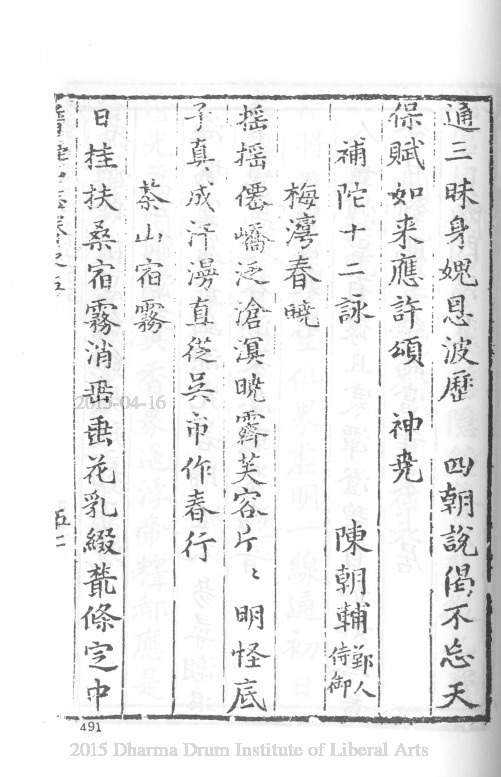 通三昧身媿恩波歷　四朝說偈不忘天
保賦如来應許頌　神尭
補陀十二詠　陳朝輔鄞人侍御
梅灣春曉
摇摇僊嶠泛滄溟曉霽芙容片〻明怪底
子真成汗漫真從吳市作春行
茶山宿霧
日挂扶桑宿霧消垂垂花乳綴藂條定中
五二
2015-04-16
491
2015 Dharma Drum Institute of Liberal Arts